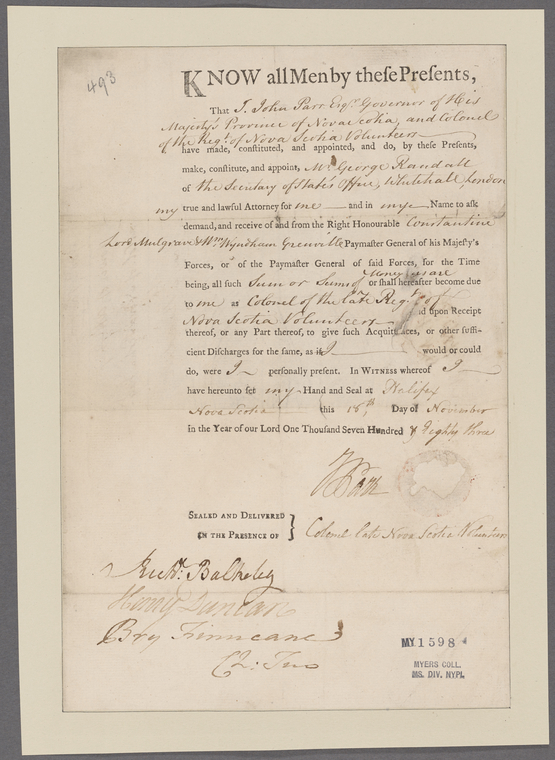 493
KNOW all Men by these Presents,
That I, John Parr Esqr. Governor of His
Majesty's Province of Nova Scotia, and Colonel
of the Regt. of Nova Scotia Volunteers
have made, constituted, and appointed, and do, by these Presents,
make, constitute, and appoint, Mr. George Randall
of the Secretary of State's Office, Whitehall, London
my true and lawful Attorney for me and in my Name to ask
demand, and receive of and from the Right Honourable Constantine
Lord Mulgrave & Wm Wyndham Grenville Paymaster General of his Majesty's
Forces, or of the Paymaster General of said Forces, for the Time
being, all such Sum or Sums of Money as are or shall hereafter become due
to me as Colonel of the late Regt. of
Nova Scotia Volunteers and upon Receipt
thereof, or any Part thereof, to give such Acquittances, or other suffi-
cient Discharges for the same, as if I would or could
do, were I personally present. In Witness whereof I
have hereunto set my Hand and Seal at Halifax
Nova Scotia this 18th Day of November
in the Year of our Lord One Thousand Seven Hundred & Eighty three
Parr
Sealed and Delivered
in the Presence of } Colonel late Nova Scotia Volunteers
Richd. Bulkeley
Henry Duncan
Bry Finucane
MY 1598
MYERS COLL.
MS. DIV. NYPL